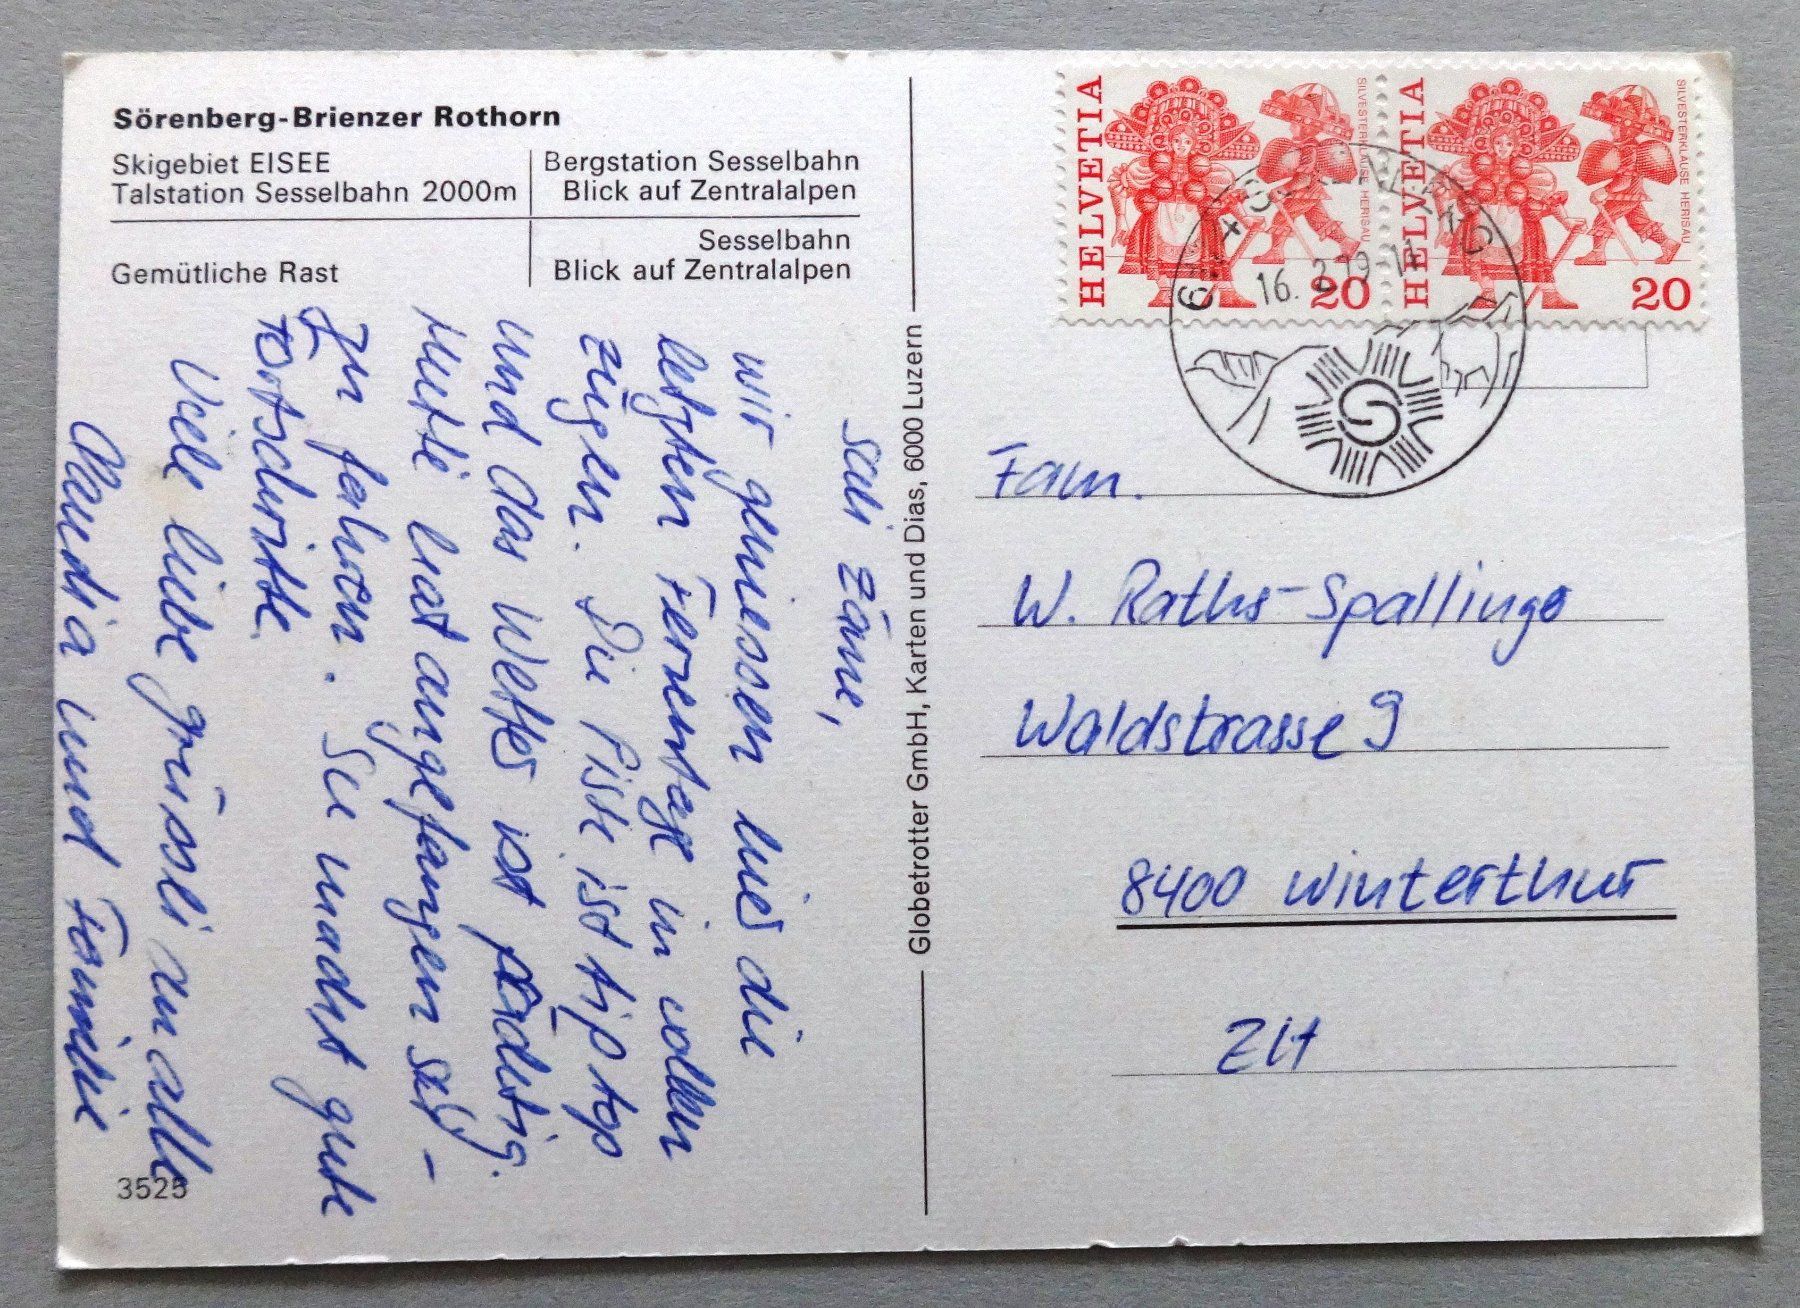 Sörenberg-Brienzer Rothorn
Skigebiet EISEE
Talstation Sesselbahn 2000m
Bergstation Sesselbahn
Blick auf Zentralalpen
Gemütliche Rast
Sesselbahn
Blick auf Zentralalpen
Sali zäme,
wir geniessen hier die
letzten Ferientage in vollen
Zügen. Die Piste ist tip top
und das Wetter ist prächtig.
hat angefangen Ski-
zu fahren. Sie macht gute
Fotschritte.
Viele liebe Grüssli an alle
Claudia und Familie
3525
Globetrotter GmbH, Karten und Dias, 6000 Luzern
HELVETIA
SILVESTERKLÄUSE HERISAU
20
HELVETIA
SILVESTERKLÄUSE HERISAU
20
16. 2.79-14
Fam.
W. Raths-Spallinger
Waldstrasse 9
8400 Winterthur
ZH